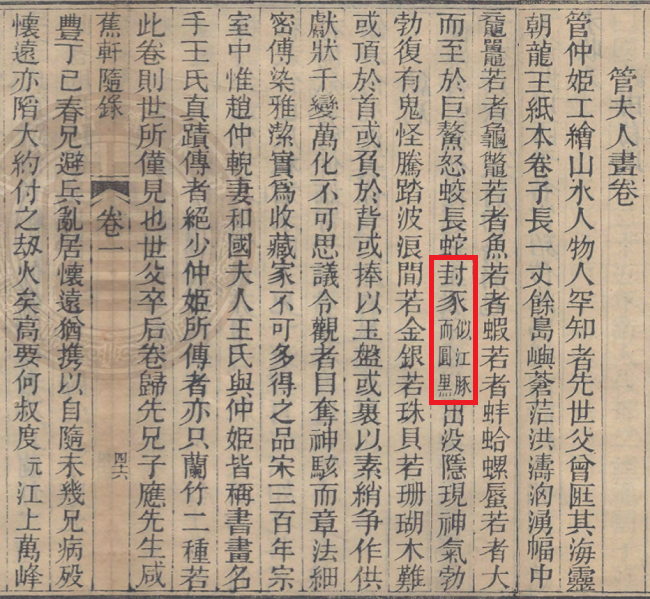 管夫人畫卷
管仲姬工繪山水人物人罕知者先世父曾匪其海靈
朝龍王紙本卷子長一丈餘島嶼蒼茫洪濤洶湧幅中
黿鼉若者龜鼈若者魚若者蝦若者蚌蛤螺蜃若者大
而至於巨鰲怒蛟長蛇封豕似江豚而圓黑出没隱現神氣勃
勃復有鬼怪騰踏波浪間若金銀若珠貝若珊瑚木難
或頂於首或負於背或捧以玉盤或裹以素綃争作供
獻狀千變萬化不可思議令觀者目奪神駭而章法細
密傅染雅潔實爲收藏家不可多得之品宋三百年宗
室中惟趙仲輗妻和國夫人王氏與仲姬皆稱書畫名
手王氏真蹟傳者絕少仲姬所傳者亦只蘭竹二種若
此卷則世所僅見也世父卒后卷歸先兄子應先生咸
蕉軒隨錄 卷一 四十六
豐丁巳春兄避兵亂居懷遠猶携以自隨未幾兄病歿
懷遠亦陷大約付之刼火矣高要何叔度元江上萬峰